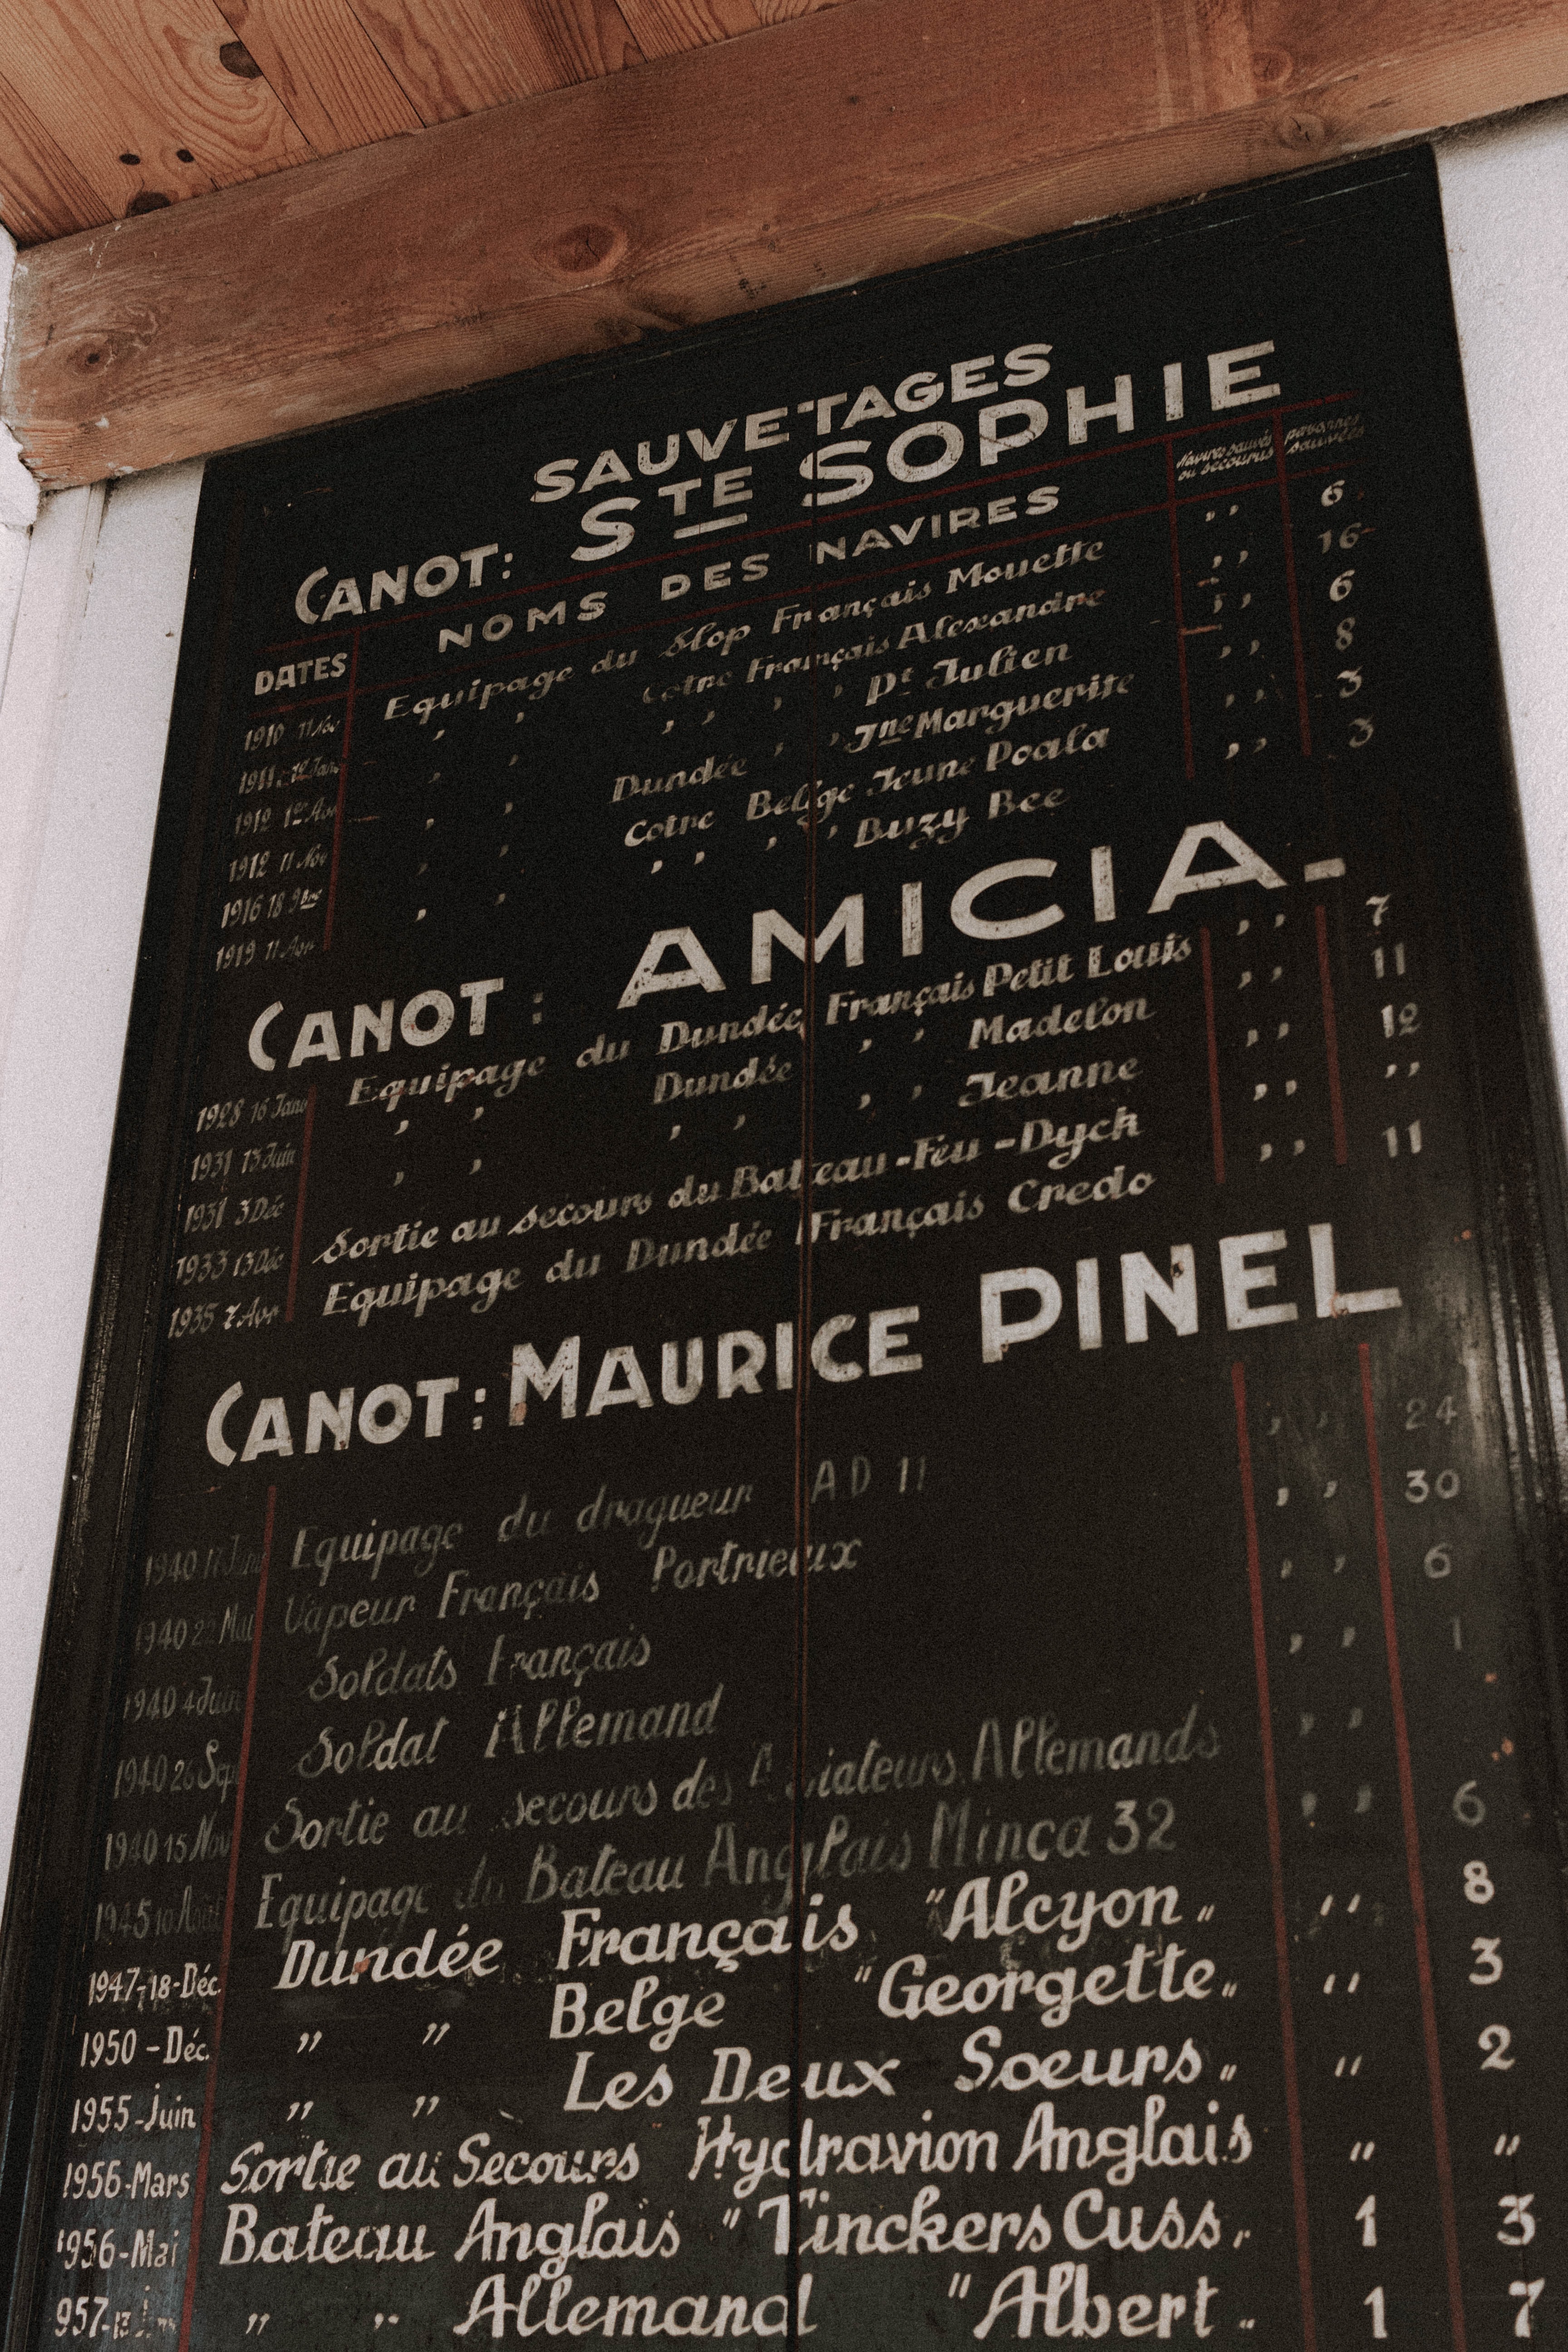 SAUVETAGES
CANOT: STE SOPHIE
DATES NOMS DES NAVIRES Navires sauvés ou secourus personnes sauvées
1910 11 Equipage du Slop Français Mouette ,, 6
1911 , , Cotre Français Alexandre ,, 16
1912 1er Avr , , , , , , Pt Julien ,, 6
1912 11 Nov , , Dundée , , Jne Marguerite ,, 8
1916 18 9bre , , Cotre Belge Jeune Poala ,, 3
1919 11 Avr , , , , , , Buzy Bee ,, 3
CANOT: AMICIA-
1928 16 Janv Equipage du Dundée Français Petit Louis ,, 7
1931 13 Juin , , Dundée , , Madelon ,, 11
1931 3 Déc , , , , , , Jeanne ,, 12
1933 13 Déc Sortie au secours du Bateau-Feu-Dyck ,, ,,
1935 7 Avr Equipage du Dundée Français Credo ,, 11
CANOT: MAURICE PINEL
1940 Equipage du dragueur AD 11 ,, 24
1940 Mai Vapeur Français Portrieux ,, 30
1940 4 Juin Soldats Français ,, 6
1940 26 Sep Soldat Allemand ,, 1
1940 15 Nov Sortie au secours des Aviateurs Allemands ,,
1945 10 Août Equipage du Bateau Anglais Minca 32 ,, 6
1947-18-Déc. Dundée Français "Alcyon„ ,, 8
1950-Déc. ,, ,, Belge "Georgette„ ,, 3
1955-Juin ,, ,, Les Deux Sœurs„ ,, 2
1956-Mars Sortie au Secours Hydravion Anglais ,, ,,
1956-Mai Bateau Anglais "Tinckers Cuss„ 1 3
957- ,, ,, Allemand "Albert„ 1 7